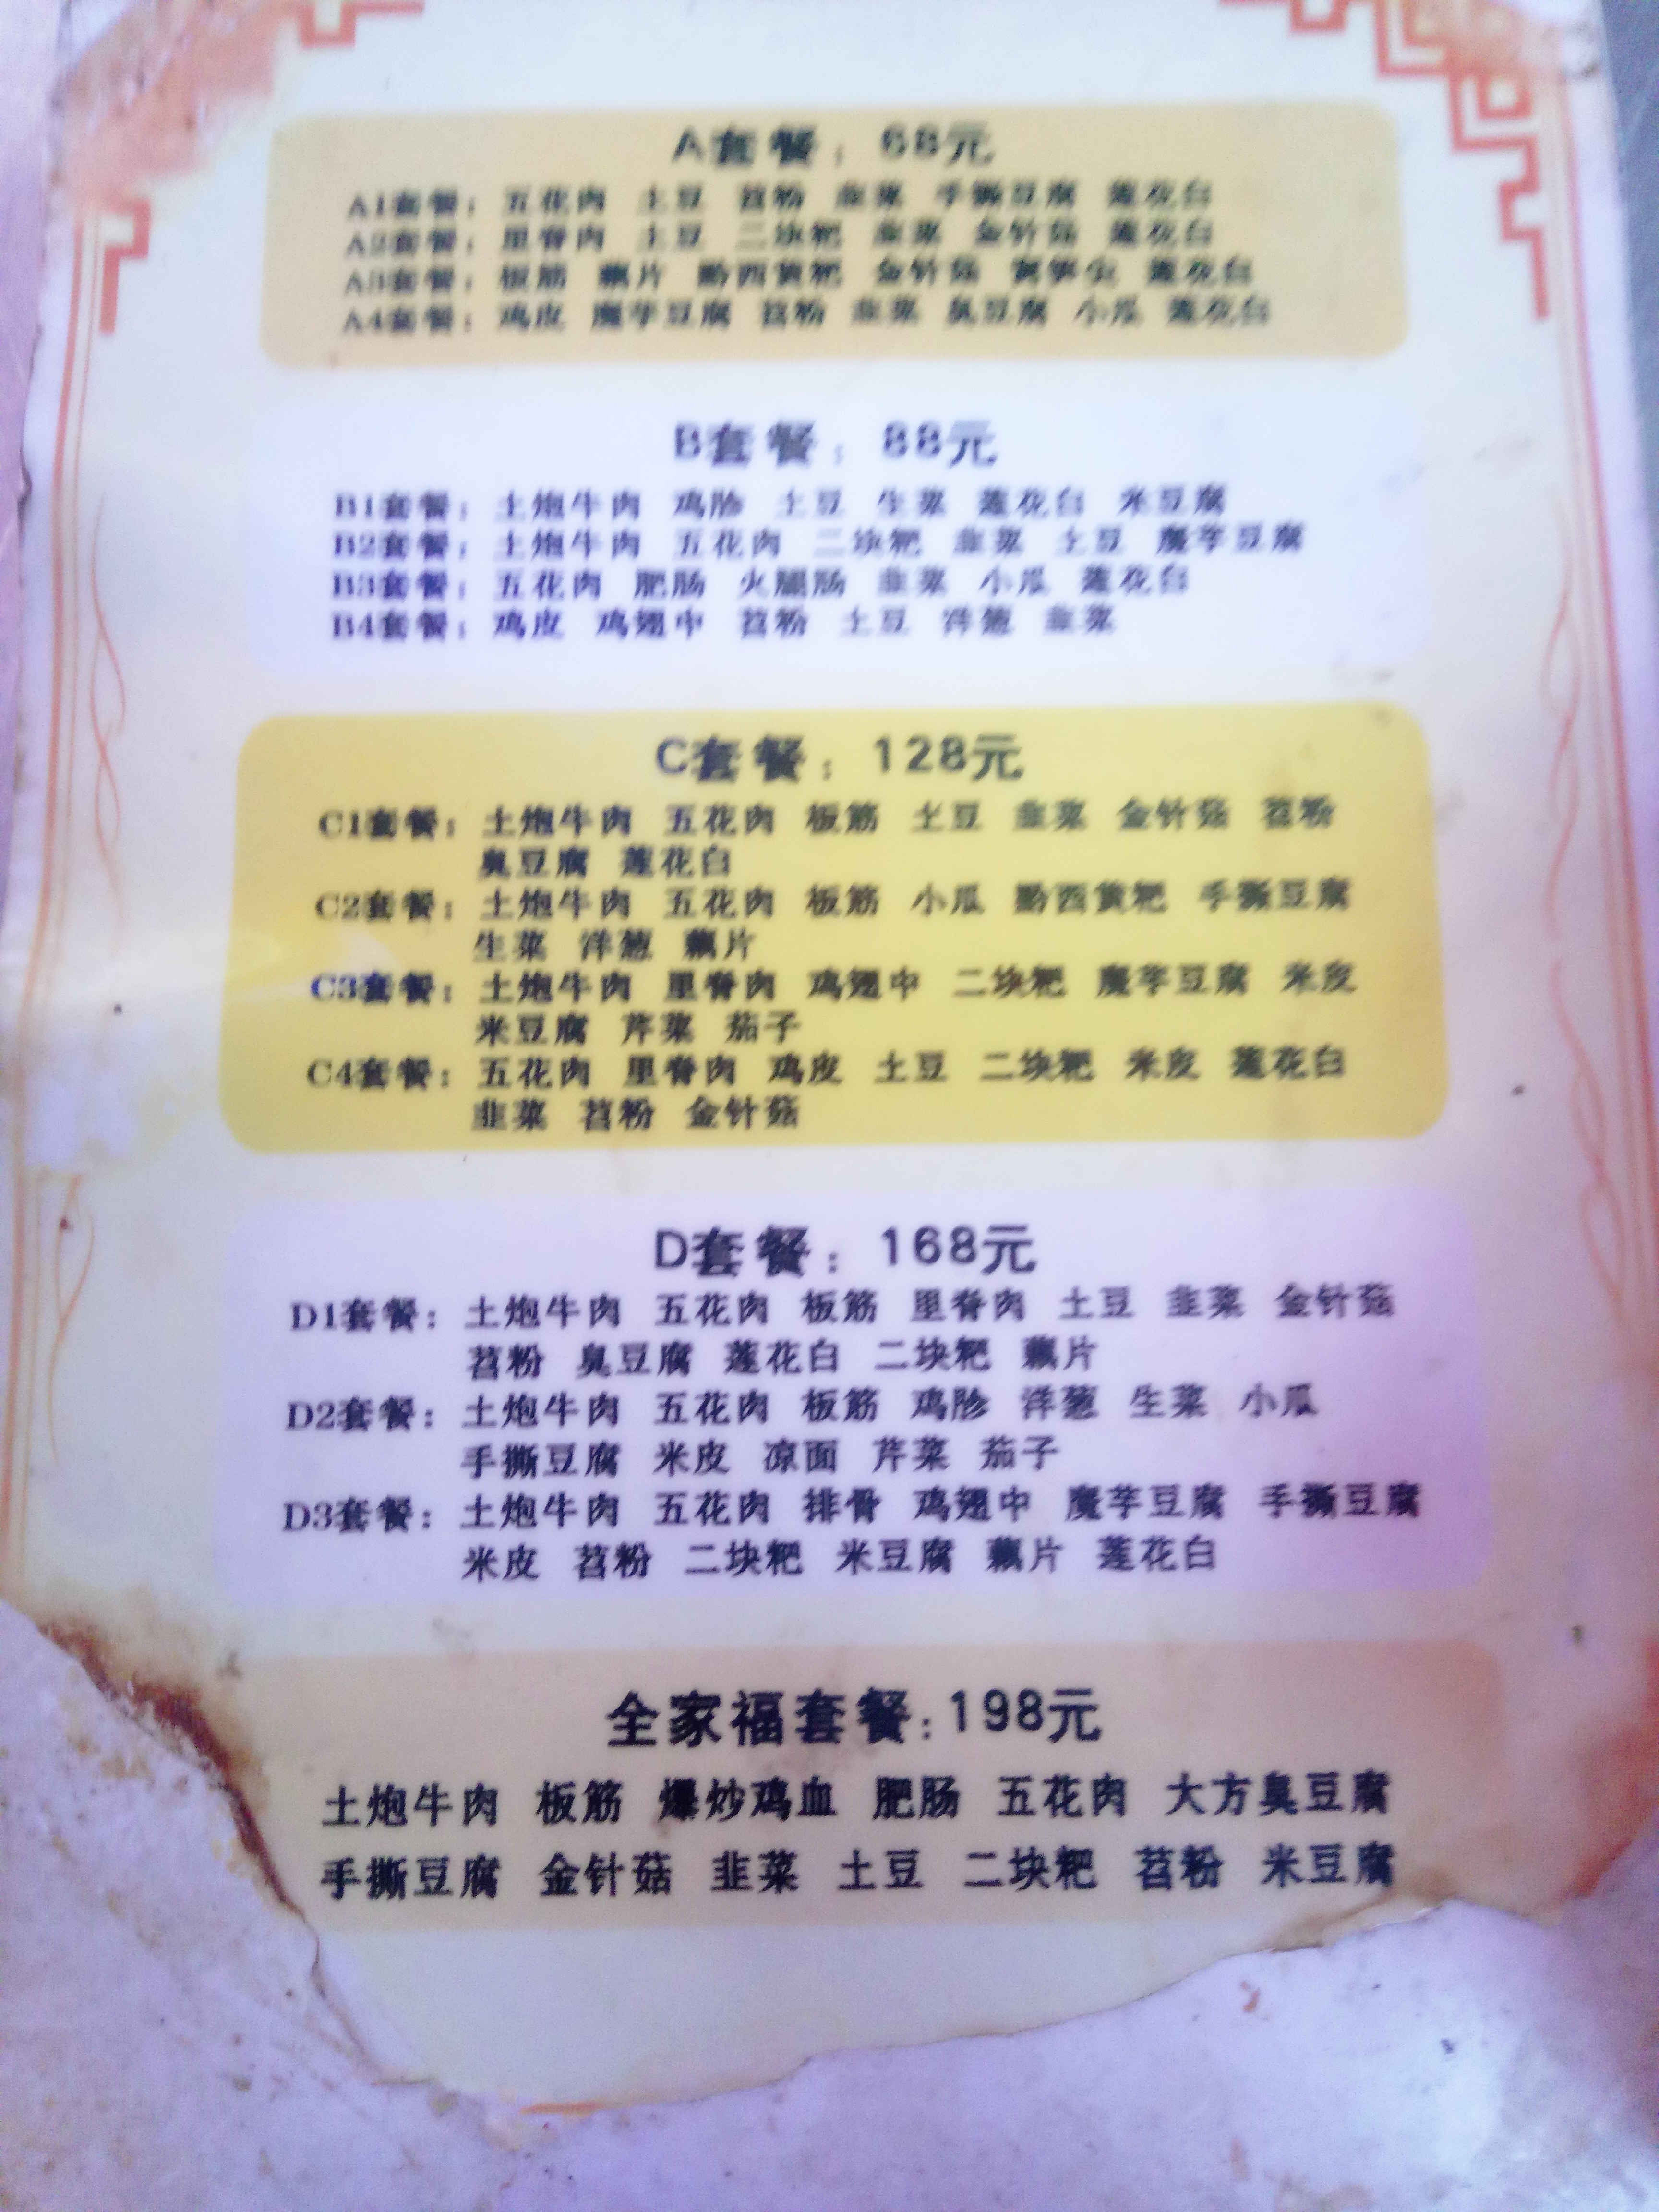 A套餐：68元
A1套餐：五花肉 土豆 苕粉 韭菜 手撕豆腐 莲花白
A2套餐：里脊肉 土豆 二块粑 韭菜 金针菇 莲花白
A3套餐：板筋 藕片 黔西黄粑 金针菇 莴笋尖 莲花白
A4套餐：鸡皮 魔芋豆腐 苕粉 韭菜 臭豆腐 小瓜 莲花白
B套餐：88元
B1套餐：土炮牛肉 鸡胗 土豆 生菜 莲花白 米豆腐
B2套餐：土炮牛肉 五花肉 二块粑 韭菜 土豆 魔芋豆腐
B3套餐：五花肉 肥肠 火腿肠 韭菜 小瓜 莲花白
B4套餐：鸡皮 鸡翅中 苕粉 土豆 洋葱 韭菜
C套餐：128元
C1套餐：土炮牛肉 五花肉 板筋 土豆 韭菜 金针菇 苕粉
臭豆腐 莲花白
C2套餐：土炮牛肉 五花肉 板筋 小瓜 黔西黄粑 手撕豆腐
生菜 洋葱 藕片
C3套餐：土炮牛肉 里脊肉 鸡翅中 二块粑 魔芋豆腐 米皮
米豆腐 芹菜 茄子
C4套餐：五花肉 里脊肉 鸡皮 土豆 二块粑 米皮 莲花白
韭菜 苕粉 金针菇
D套餐：168元
D1套餐：土炮牛肉 五花肉 板筋 里脊肉 土豆 韭菜 金针菇
苕粉 臭豆腐 莲花白 二块粑 藕片
D2套餐：土炮牛肉 五花肉 板筋 鸡胗 洋葱 生菜 小瓜
手撕豆腐 米皮 凉面 芹菜 茄子
D3套餐：土炮牛肉 五花肉 排骨 鸡翅中 魔芋豆腐 手撕豆腐
米皮 苕粉 二块粑 米豆腐 藕片 莲花白
全家福套餐：198元
土炮牛肉 板筋 爆炒鸡血 肥肠 五花肉 大方臭豆腐
手撕豆腐 金针菇 韭菜 土豆 二块粑 苕粉 米豆腐